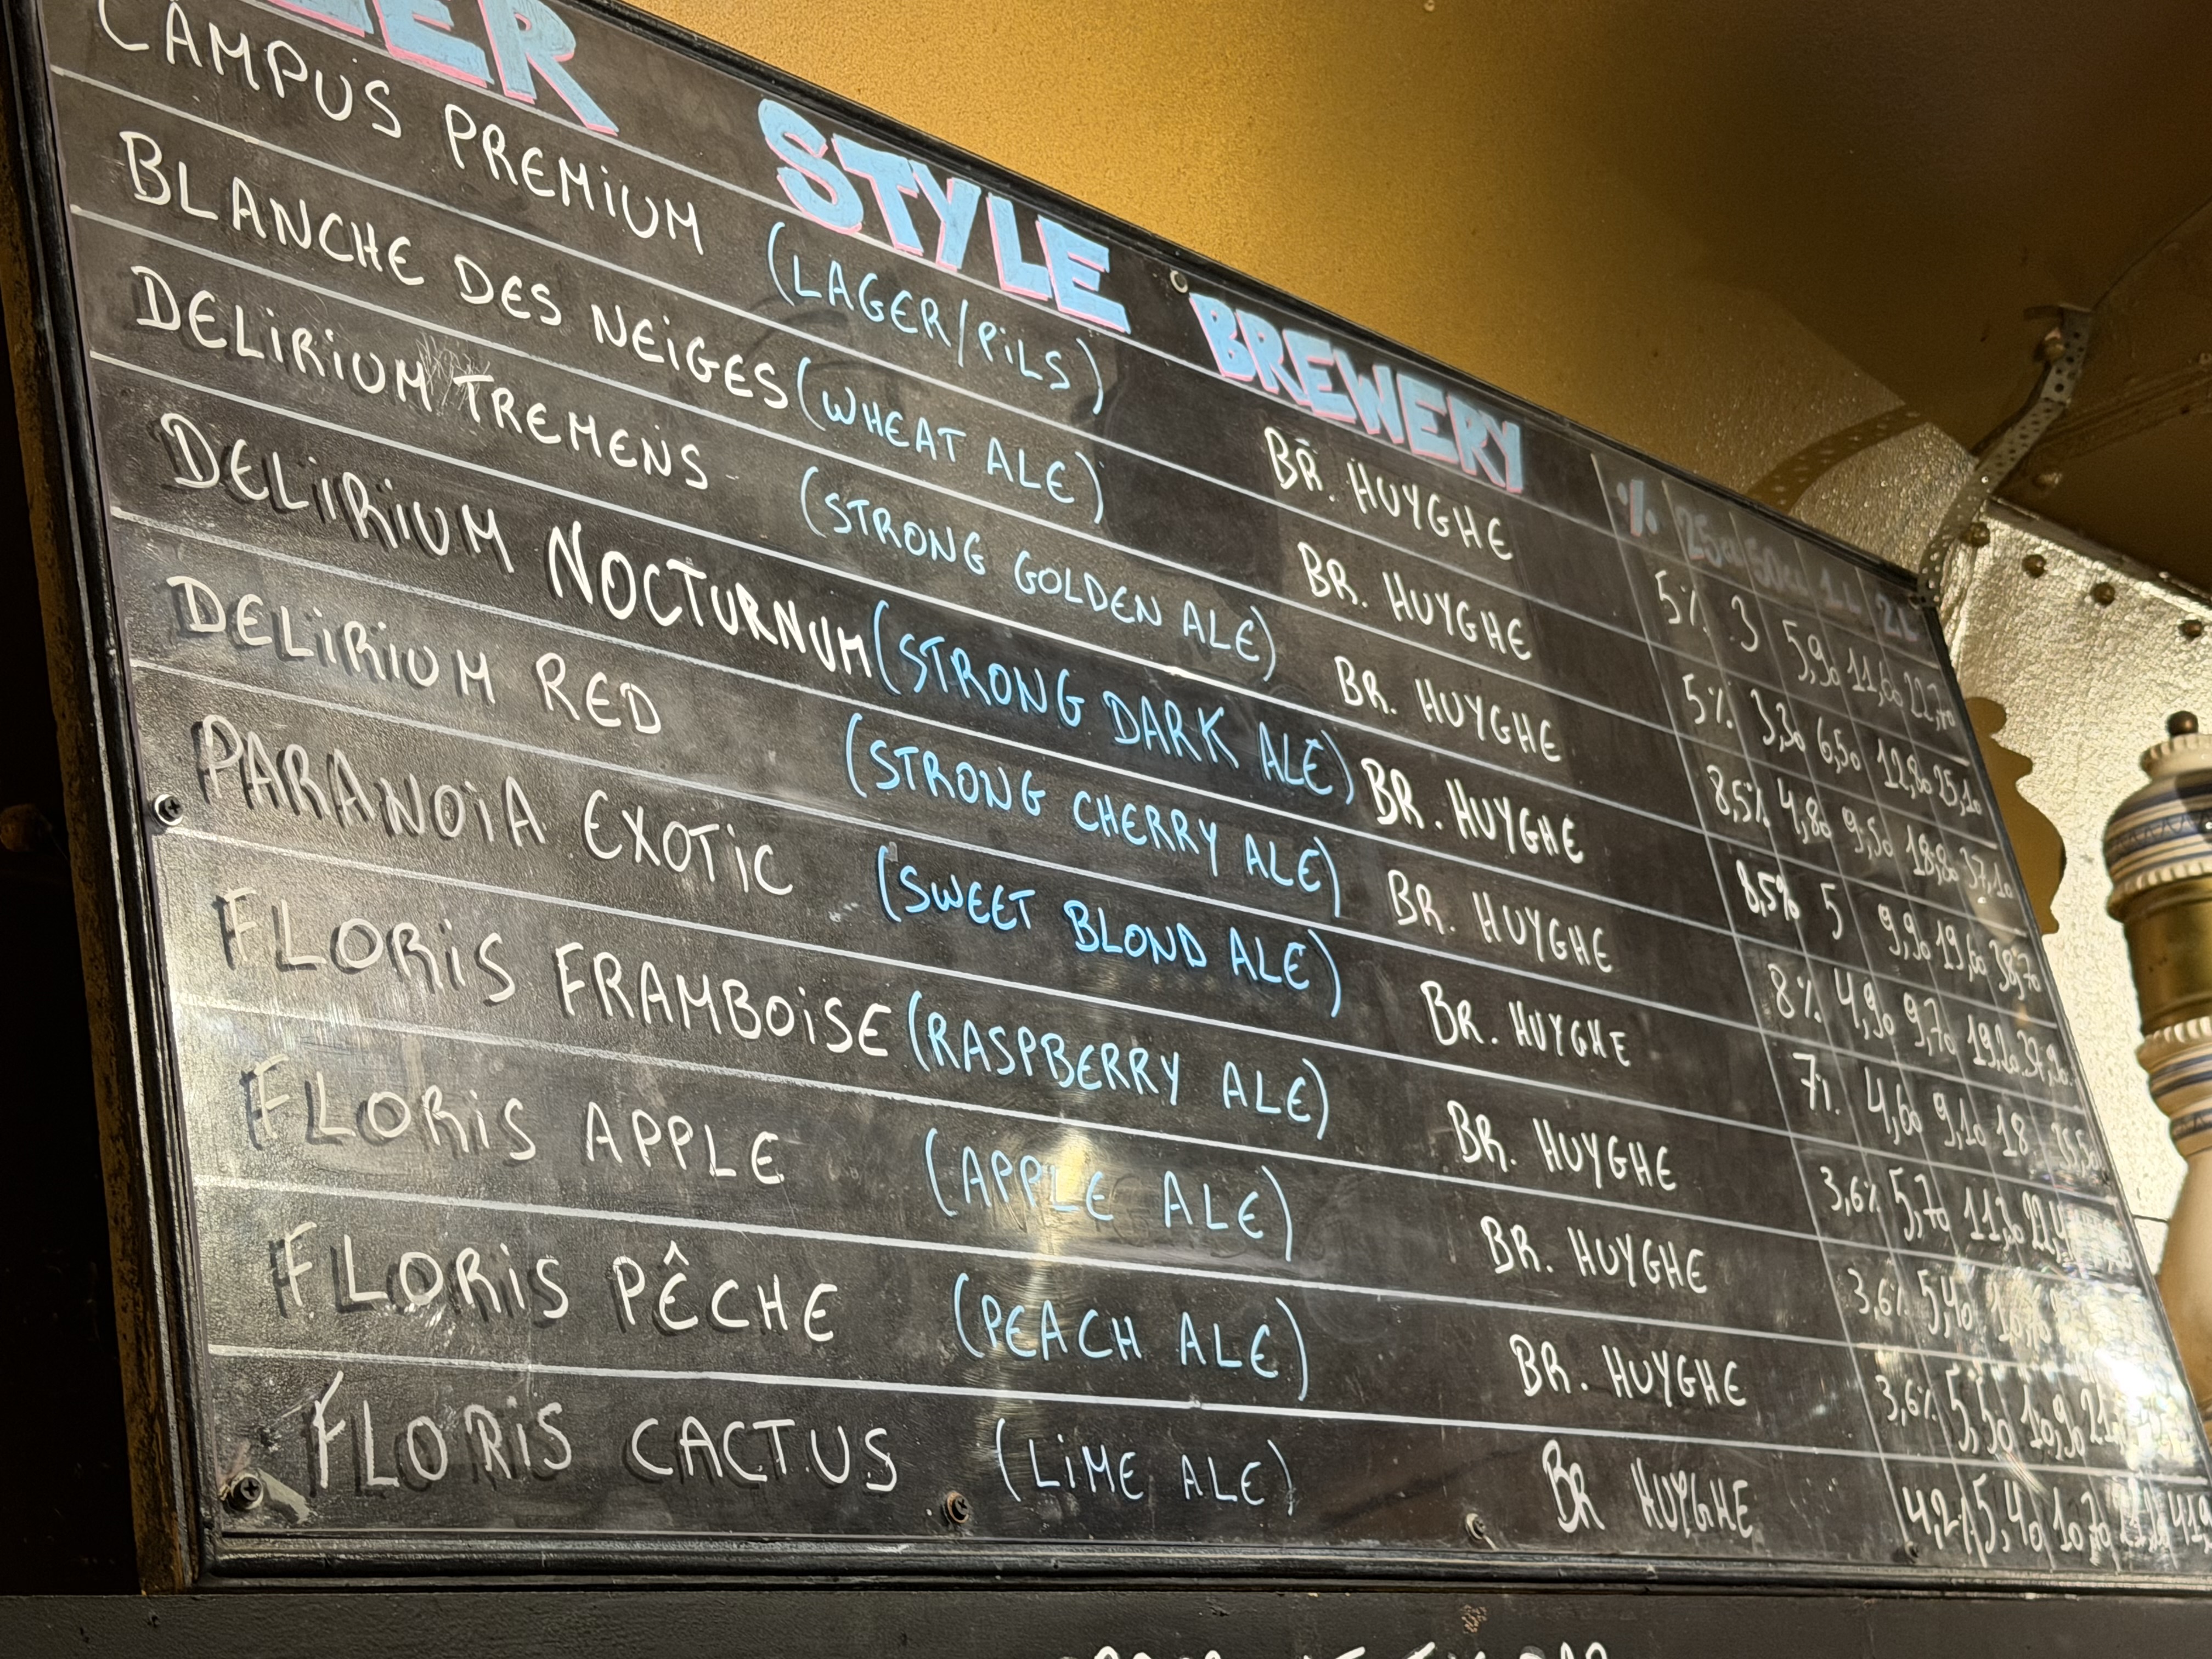 STYLE BREWERY % 25cl 50cl 1L 2L
CAMPUS PREMIUM (LAGER/PiLS) BR. HUYGHE 5% 3 5,90 11,60 22,70
BLANCHE DES NEiGES (WHEAT ALE) BR. HUYGHE 5% 3,30 6,50 12,80 25,10
DELiRiUM TREMENS - (STRONG GOLDEN ALE) BR. HUYGHE 8,5% 4,80 9,50 18,80 37,10
DELiRiUM NOCTURNUM (STRONG DARK ALE) BR. HUYGHE 8,5% 5 9,90 19,60 38,70
DELiRiUM RED (STRONG CHERRY ALE) BR. HUYGHE 8% 4,90 9,70 19,20 37,90
PARANOiA EXOTiC (SWEET BLOND ALE) BR. HUYGHE 7% 4,60 9,10 18 35,50
FLORiS FRAMBOiSE (RASPBERRY ALE) BR. HUYGHE 3,6% 5,70 11,30
FLORiS APPLE (APPLE ALE) BR. HUYGHE 3,6% 5,40
FLORiS PÊCHE (PEACH ALE) BR. HUYGHE 3,6% 5,50 10,90
FLORiS CACTUS (LiME ALE) BR HUYGHE 5,40 10,70